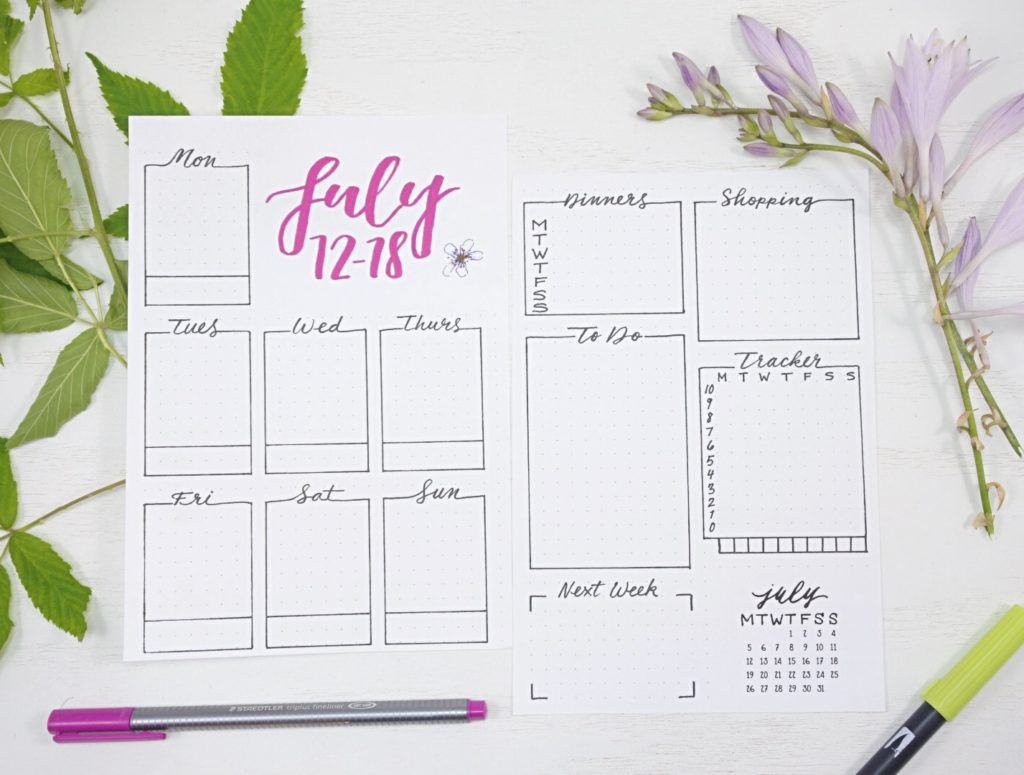 Mon
July
12-18
Tues
Wed
Thurs
Fri
Sat
Sun
Dinners
M
T
W
T
F
S
S
Shopping
To Do
Tracker
M T W T F S S
10
9
8
7
6
5
4
3
2
1
0
Next Week
july
M T W T F S S
1 2 3 4
5 6 7 8 9 10 11
12 13 14 15 16 17 18
19 20 21 22 23 24 25
26 27 28 29 30 31
STAEDTLER triplus fineliner